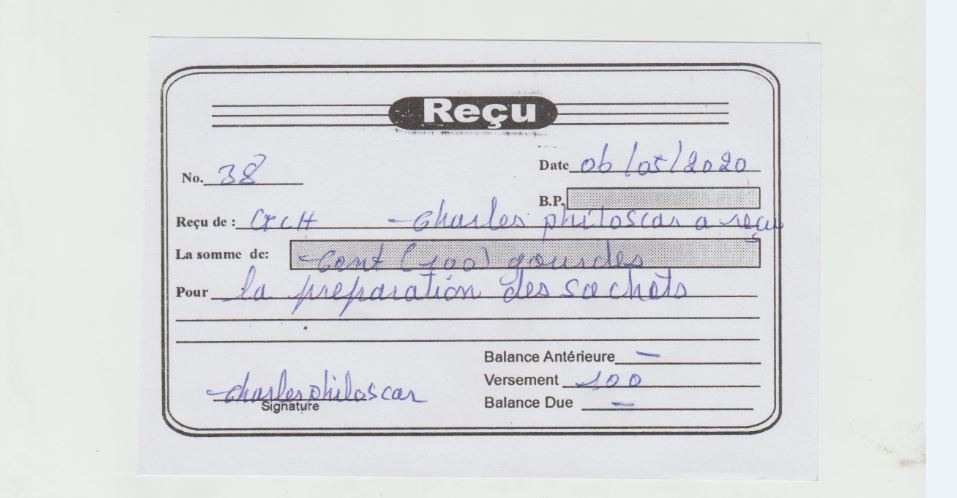 Reçu
No. 38
Date 06/05/2020
B.P.
Reçu de : - Charles philoscar a reçu
La somme de: Cent (100) gourdes
Pour la préparation des sachets
Balance Antérieure —
Versement 100
Balance Due —
charles philoscar
Signature